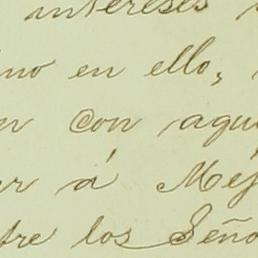 intereses
ino en ello,
con aqu
er á Méj
tre los Seño